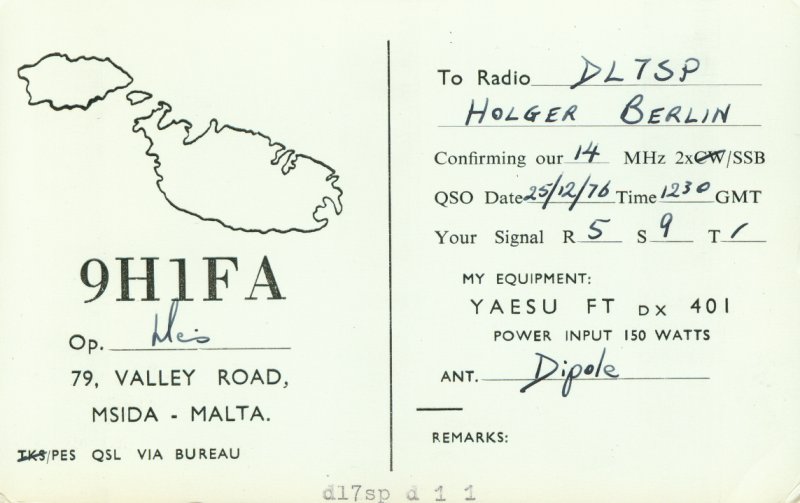 9H1FA
Op.
79, VALLEY ROAD,
MSIDA - MALTA.
TKS/PES QSL VIA BUREAU
To Radio DL7SP
HOLGER BERLIN
Confirming our 14 MHz 2xCW/SSB
QSO Date 25/12/76 Time 1230 GMT
Your Signal R 5 S 9 T /
MY EQUIPMENT:
YAESU FT DX 401
POWER INPUT 150 WATTS
ANT. Dipole
REMARKS:
dl7sp d 1 1